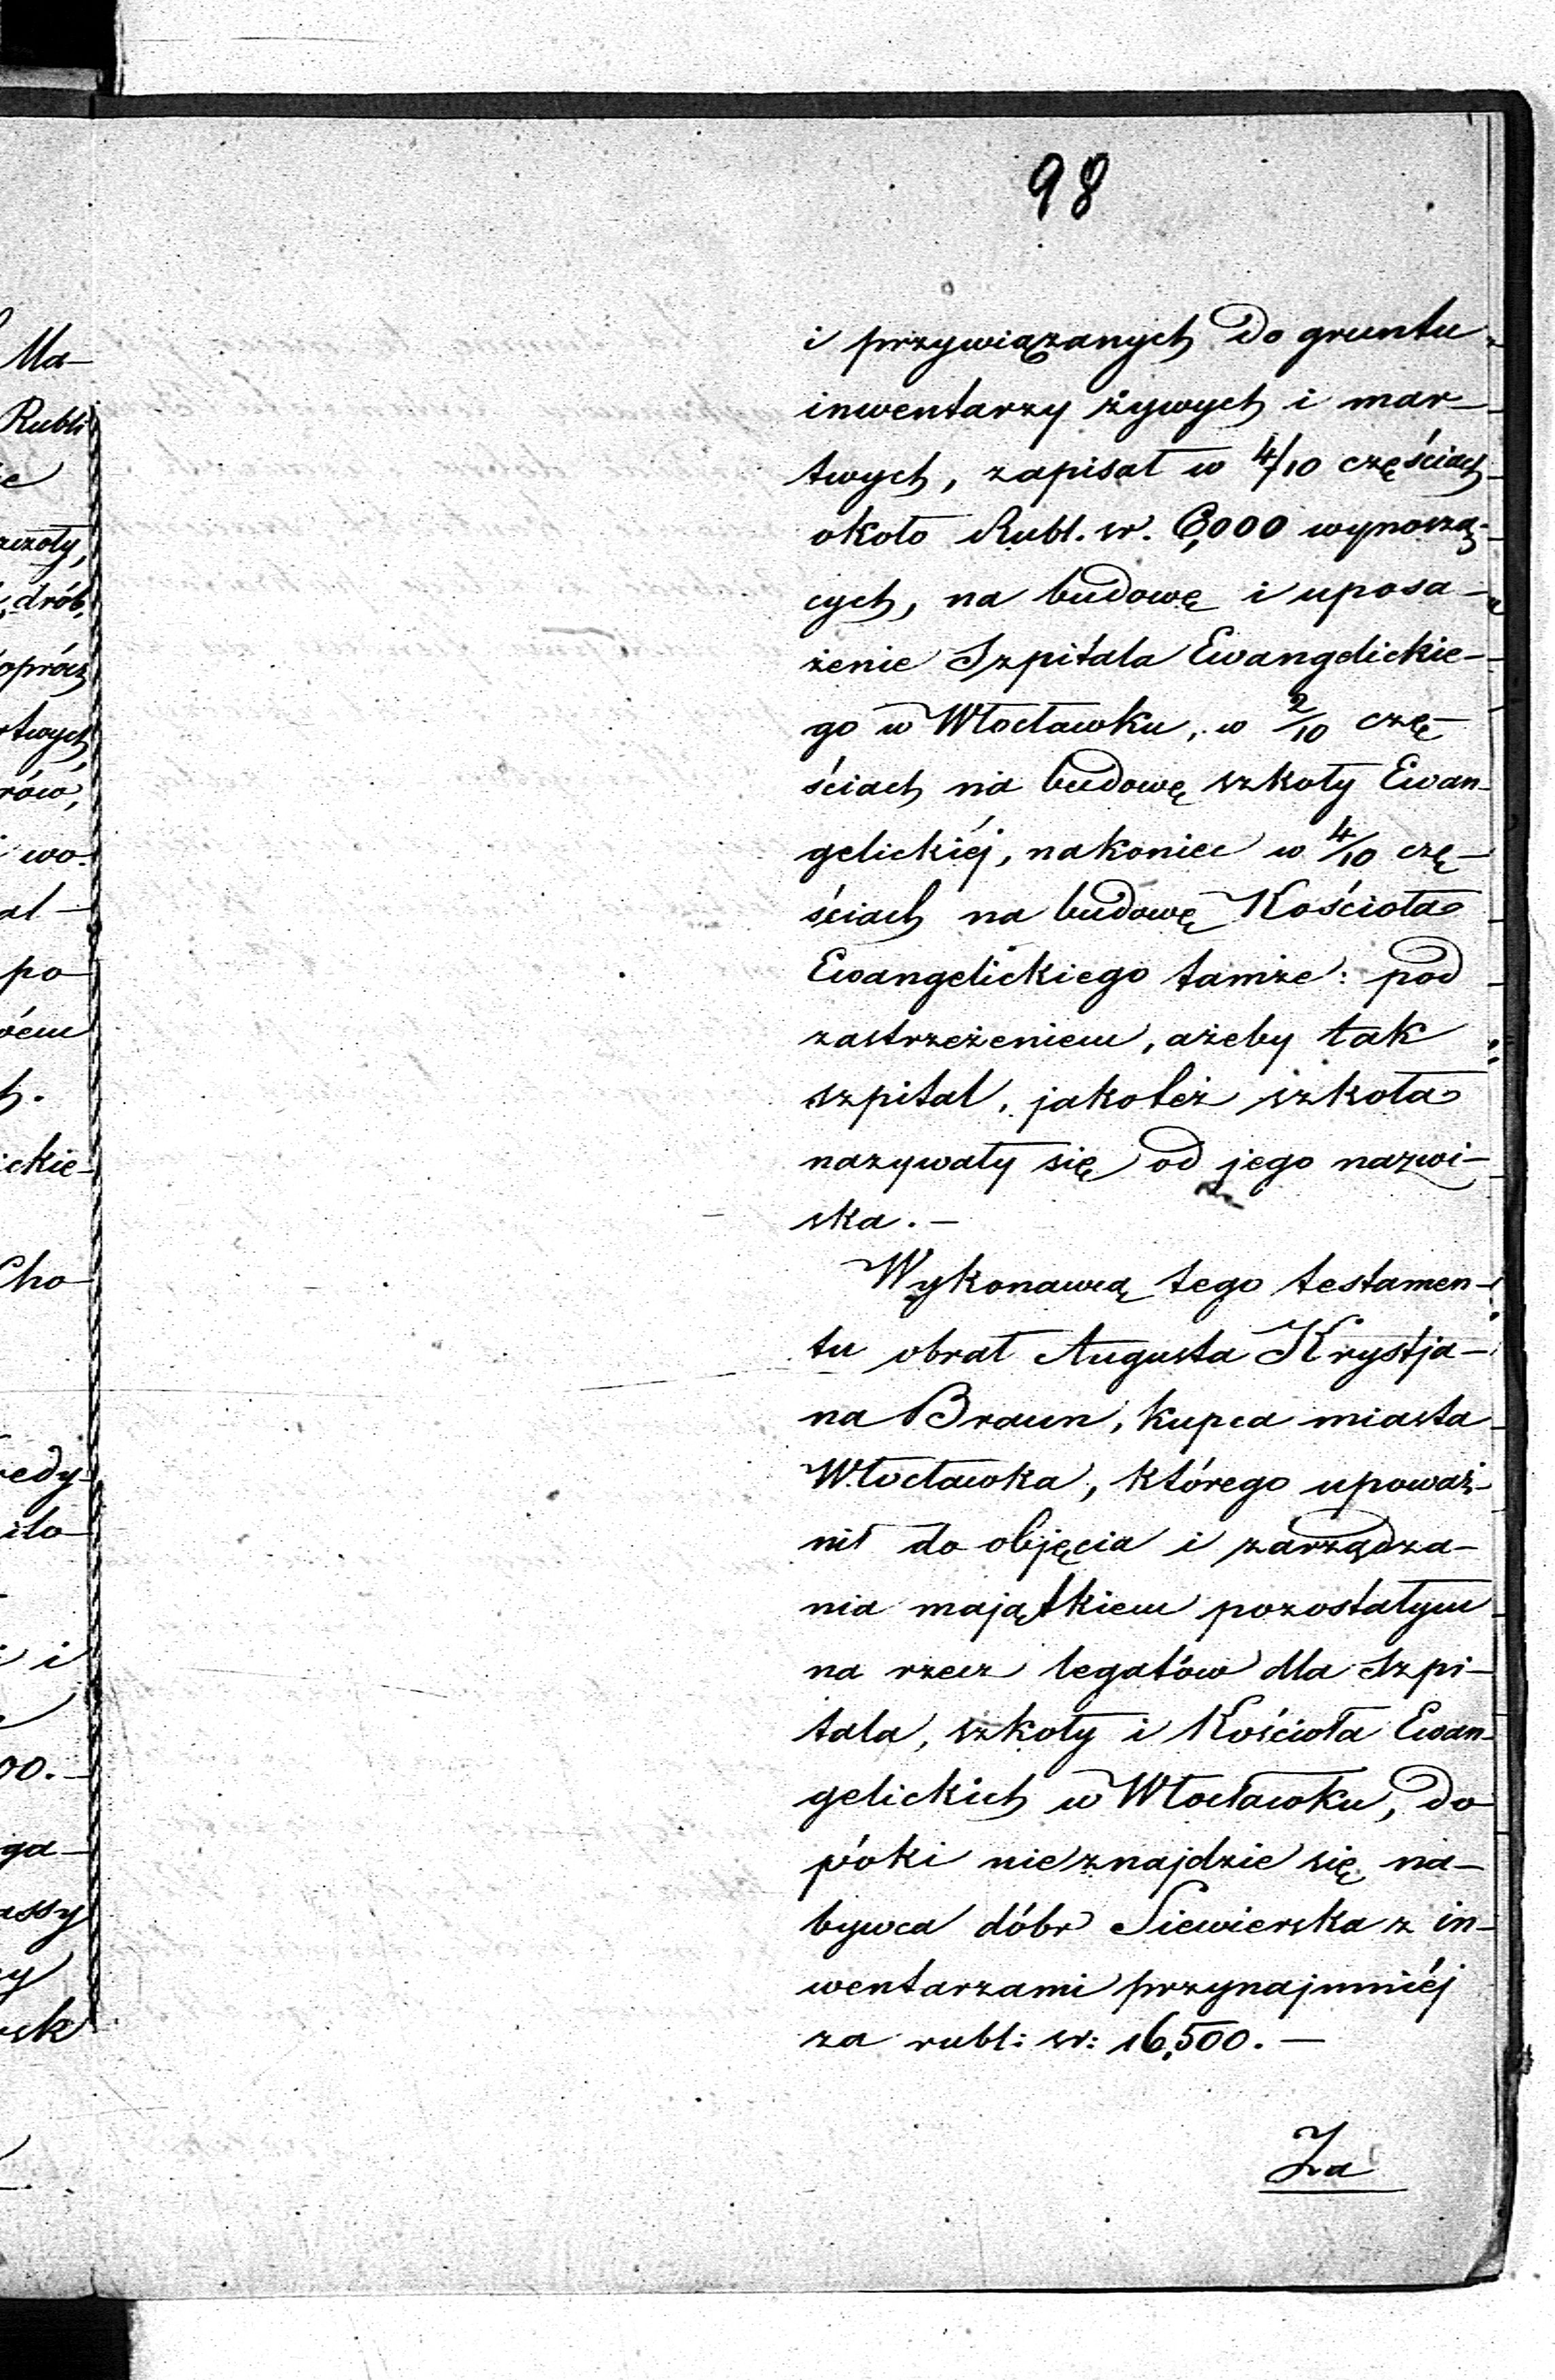 98
i przywiązanych do gruntu
inwentarzy żywych i mar-
twych, zapisał w 4/10 częściach
około Rubl. sr. 6,000 wynoszą-
cych, na budowę i uposa-
żenie Szpitala Ewangelickie-
go w Włocławku, w 2/10 czę-
ściach na budowę szkoły Ewan-
gelickiéj, nakoniec w 4/10 czę-
ściach na budowę Kościoła
Ewangelickiego tamże: pod
zastrzeżeniem, ażeby tak
szpital, jakoteż szkoła
nazywały się od jego nazwi-
ska. —
Wykonawcą tego testamen-
tu obrał Augusta Krystja-
na Braun, kupca miasta
Włocławka, którego upoważ-
nił do objęcia i zarządza-
nia majątkiem pozostałym
na rzecz legatów dla Szpi-
tala, szkoły i Kościoła Ewan-
gelickich w Włocławku, do
póki nieznajdzie się na-
bywca dóbr Siewierska z in-
wentarzami przynajmniéj
za rubl: sr: 16,500. —
Za
Ma-
Rubli
drób,
oprócz
rtwych,
rów,
wo-
al-
po-
ickie-
Cho-
redy-
ilo-
i i
00.-
ga-
assy